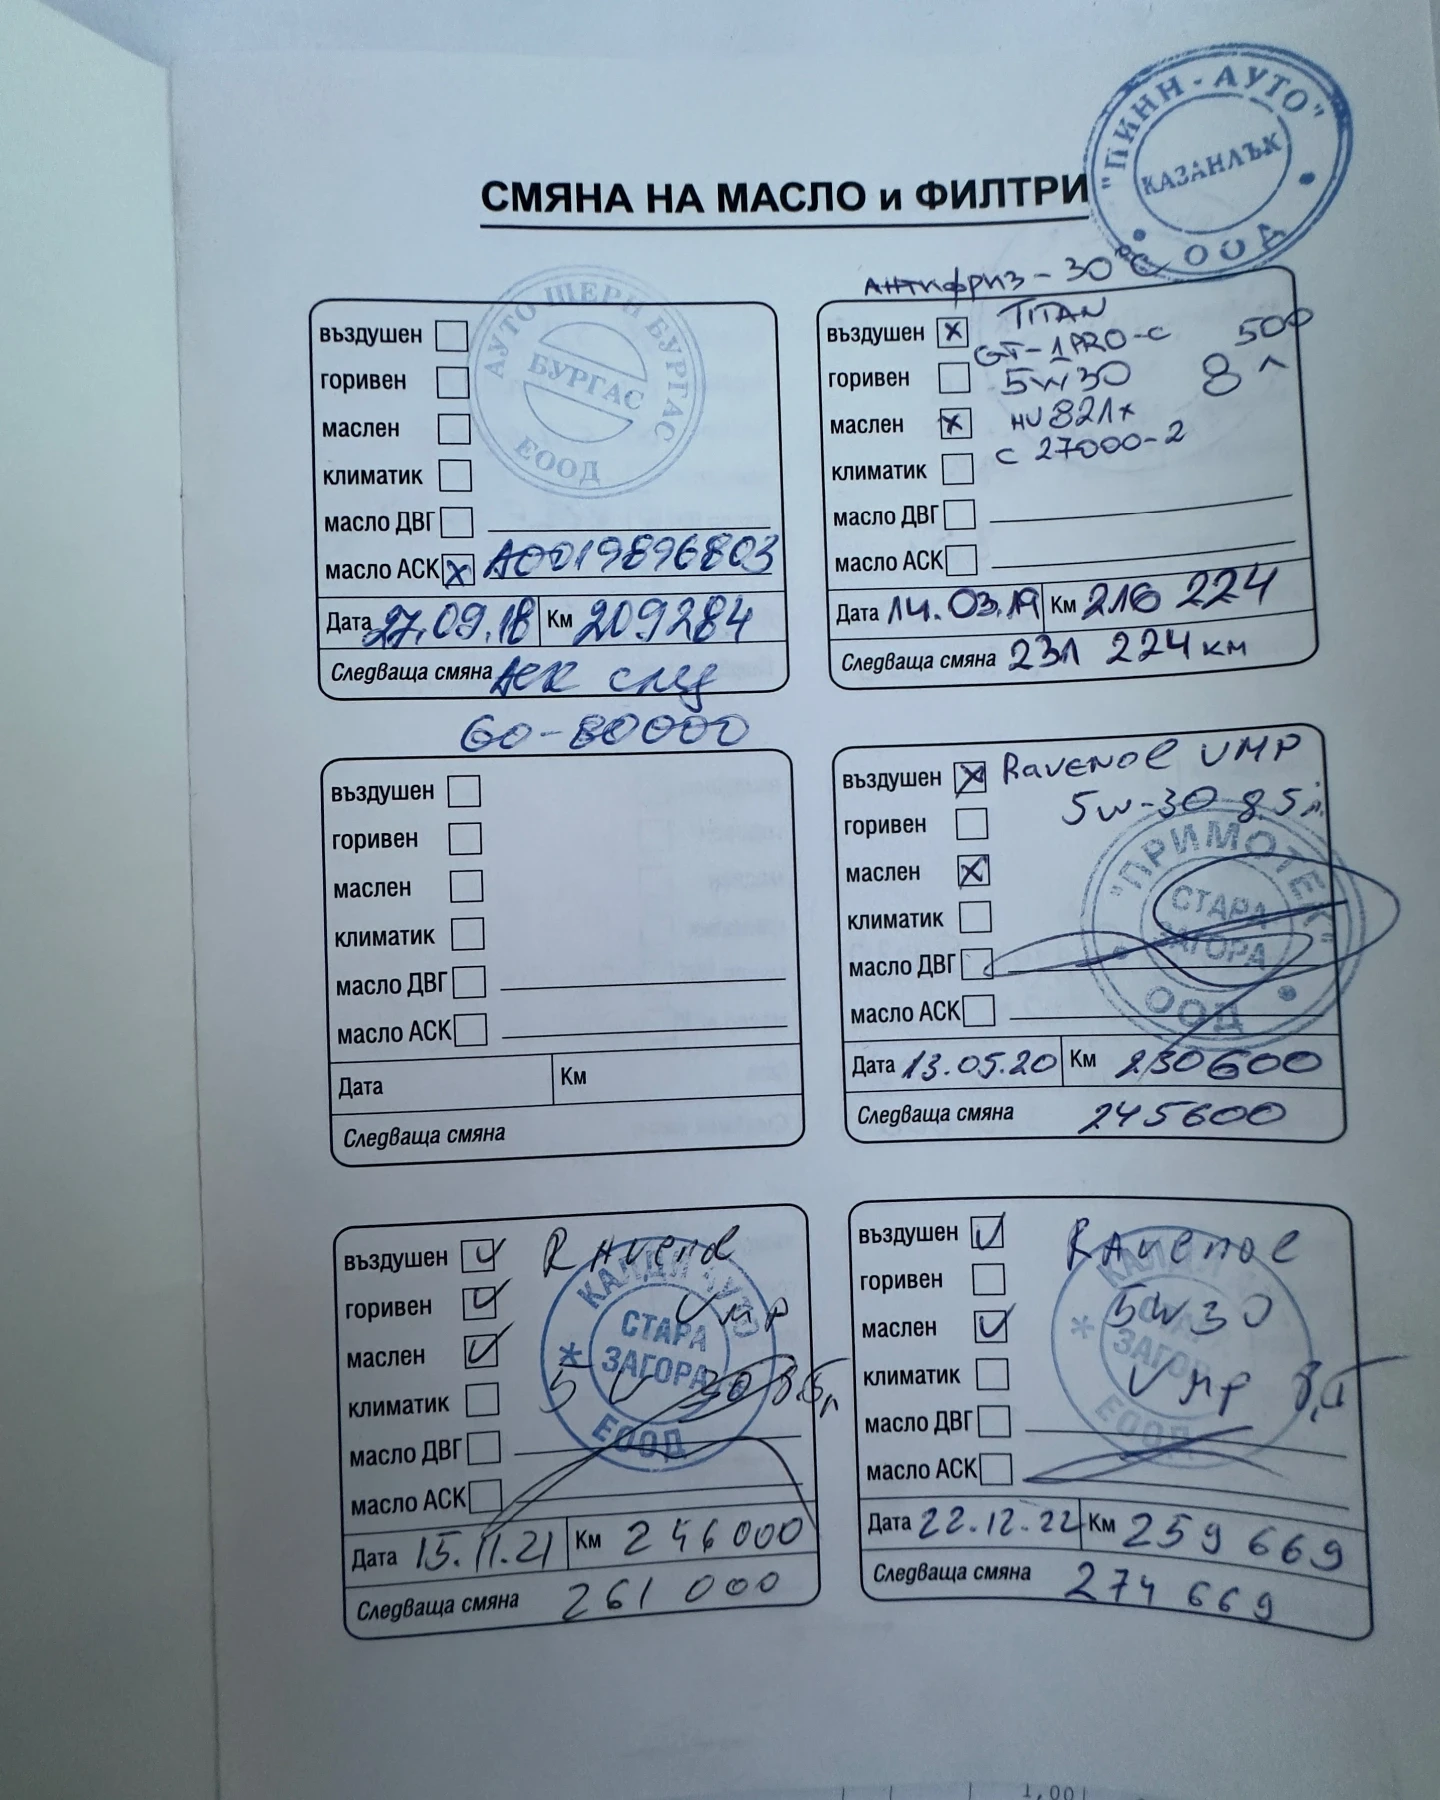 "ПИНН-АУТО"
КАЗАНЛЪК
ООД
СМЯНА НА МАСЛО и ФИЛТРИ
АУТО ШЕРИ БУРГАС
БУРГАС
ЕООД
въздушен
горивен
маслен
климатик
масло ДВГ
масло АСК x A0019896803
Дата 27.09.18 Км 209284
Следваща смяна АСК след
60-80000
Антифриз - 30°C
въздушен x TITAN
GT-1PRO-C 500
горивен 5W30 8 л
маслен x HU821x
климатик C 27000-2
масло ДВГ
масло АСК
Дата 14.03.19 Км 216 224
Следваща смяна 231 224 км
въздушен
горивен
маслен
климатик
масло ДВГ
масло АСК
Дата Км
Следваща смяна
въздушен x Ravenol VMP
5w-30 8.5л.
горивен
маслен x
климатик
масло ДВГ
масло АСК
"ПРИМОТЕК"
СТАРА
ЗАГОРА
ООД
Дата 13.05.20 Км 230600
Следваща смяна 245600
въздушен Ravenol
горивен VMP
маслен
климатик 5W 30 8.5л
масло ДВГ
масло АСК
КАЛДИ АУТО
СТАРА
ЗАГОРА
ЕООД
Дата 15.11.21 Км 246000
Следваща смяна 261 000
въздушен Ravenol
горивен 5W30
маслен
климатик VMP
масло ДВГ
масло АСК
ЗАГОРА
ЕООД
Дата 22.12.22 Км 259 669
Следваща смяна 274 669
1,00